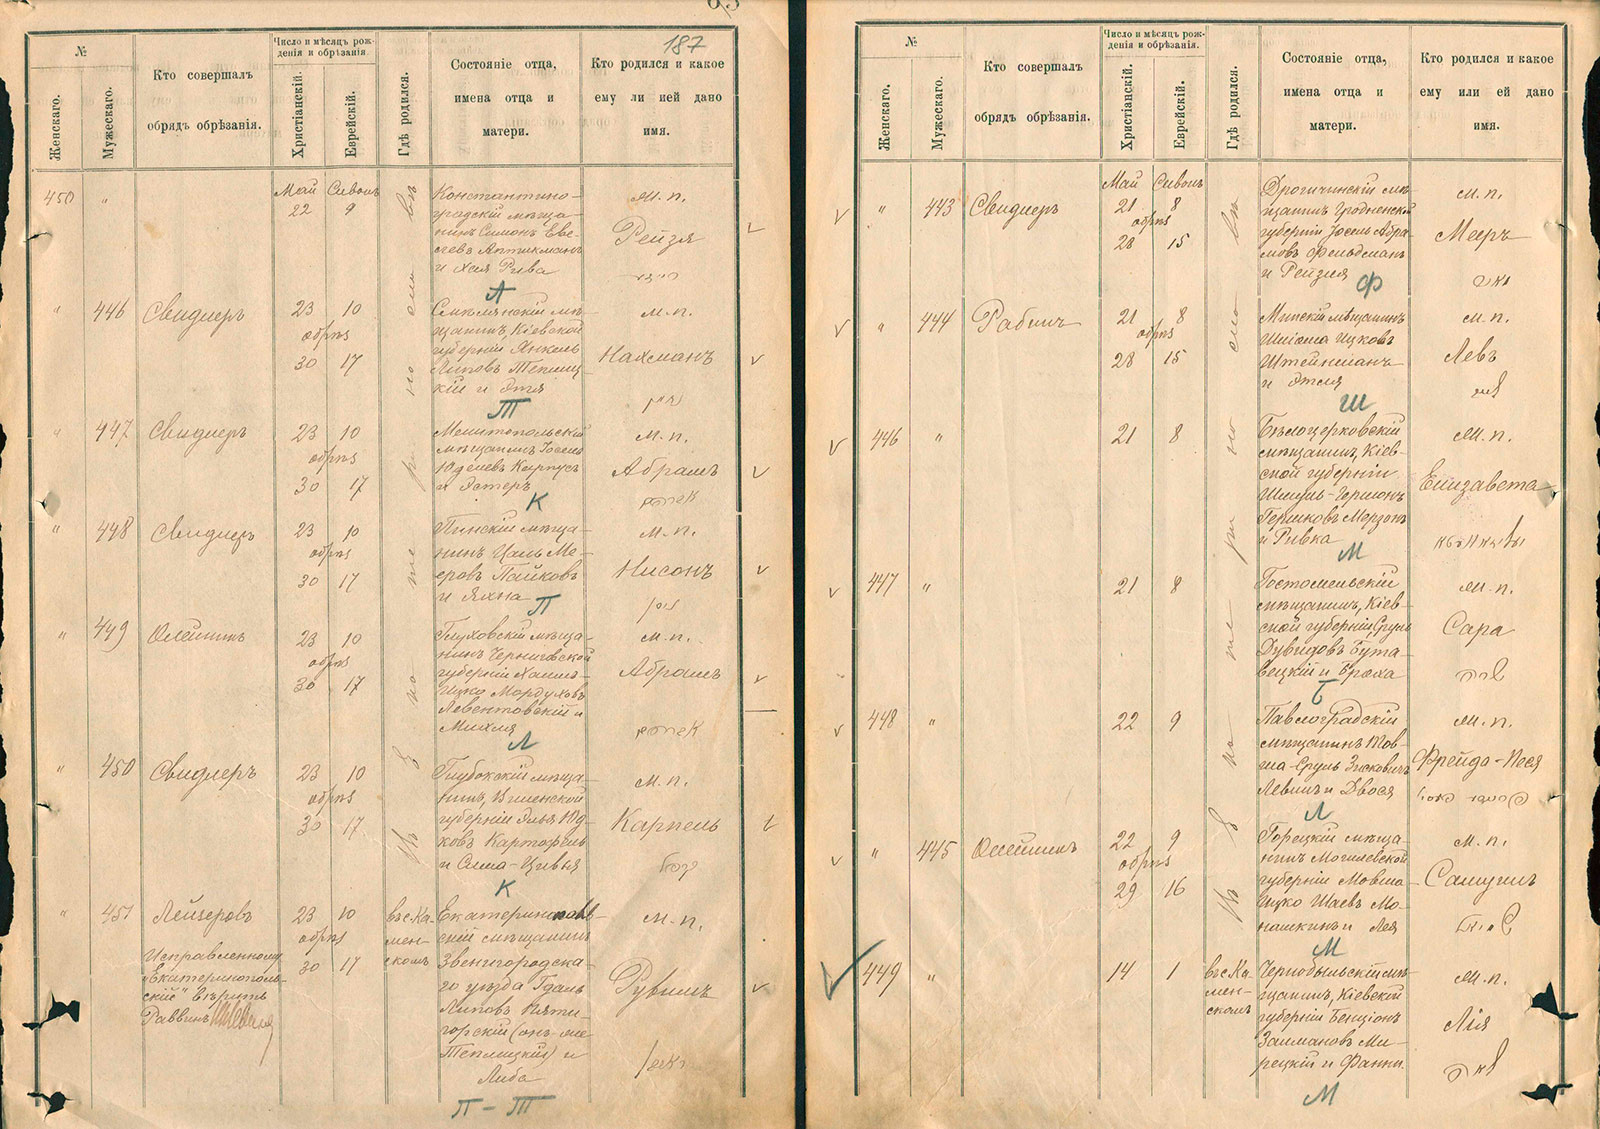 187
№
Женскаго.
Мужескаго.
Кто совершалъ
обрядъ обрѣзанія.
Число и мѣсяцъ рож-
денія и обрѣзанія
Христіанскій.
Еврейскій.
Гдѣ родился.
Состояніе отца,
имена отца и
матери.
Кто родился и какое
ему ли ией дано
имя.
450 "
Май Сивонъ
22 9
Константино-
градскій мѣща-
нинъ Симонъ Еве-
левъ Аптикманъ
и Хая Рива
А
м. п.
Рейзя
" 446 Свидлеръ
23 10
обрѣз
30 17
мѣ-
щанинъ, Кіевской
губерніи Янкель
Липовъ Теплиц-
кій и Этя
Т
м. п.
Нахманъ
" 447 Свидлеръ
23 10
обрѣз
30 17
Мелитопольскій
мѣщанинъ Іосель
Юделевъ Карпусъ
и Эстеръ
К
м. п.
Абрамъ
" 448 Свидлеръ
23 10
обрѣз
30 17
Пинскій мѣща-
нинъ Цаль Ме-
еровъ Пайковъ
и Яхна
П
м. п.
Нисонъ
" 449 Олейникъ
23 10
обрѣз
30 17
Глуховскій мѣща-
нинъ Черниговской
губерніи Хаимъ-
Ицко Мордуховъ
Левентовскій и
Михля
Л
м. п.
Абрамъ
" 450 Свидлеръ
23 10
обрѣз
30 17
Глубокскій мѣща-
нинъ, Виленской
губерніи Элья Юд-
ковъ Картофель
и Сима-Цивья
К
м. п.
Карпель
" 451 Лейзеровъ
23 10
обрѣз
30 17
въ с Ка-
мен-
скомъ
Екатеринополь-
скій мѣщанинъ
Звенигородска-
го уѣзда Гдаль
Липовъ Пяти-
горскій (онъ-же
Теплицкій) и
Либа
П - Т
м. п.
Рувинъ
Исправленному
"Екатеринополь-
скій" вѣрить
Раввинъ
№
Женскаго.
Мужескаго.
Кто совершалъ
обрядъ обрѣзанія.
Число и мѣсяцъ рож-
денія и обрѣзанія.
Христіанскій.
Еврейскій.
Гдѣ родился.
Состояніе отца,
имена отца и
матери.
Кто родился и какое
ему или ей дано
имя.
" 443 Свидлеръ
Май Сивонъ
21 8
обрѣз
28 15
Дрогичинскій мѣ-
щанинъ Гродненской
губерніи Іосель Абра-
мовъ Фельдманъ
и Рейзля
Ф
м. п.
Мееръ
" 444 Рабинъ
21 8
обрѣз
28 15
Минскій мѣщанинъ
Шліома Ицковъ
Штейнманъ
и Этля
Ш
м. п.
Левъ
446 "
21 8
Бѣлоцерковскій
мѣщанинъ, Кіев-
ской губерніи
Шмуль-Гершонъ
Гершковъ Мерзонъ
и Ривка
М
м. п.
Елизавета
447 "
21 8
Гостомельскій
мѣщанинъ, Кіев-
ской губерніи, Сруль
Дувидовъ Бута-
вецкій и Броха
Б
м. п.
Сара
448 "
22 9
Павлоградскій
мѣщанинъ Мов-
ша-Сруль Зисковичъ
Левинъ и Двося
Л
м. п.
Фрейда-Песя
" 445 Олейникъ
22 9
обрѣз
29 16
Горецкій мѣща-
нинъ Могилевской
губерніи Мовша-
Ицко Шаевъ Мо-
нашкинъ и Лея
М
м. п.
Самуилъ
449 "
14 1
въ с Ка-
мен-
скомъ
Чернобыльскій мѣ-
щанинъ, Кіевской
губерніи Бенціонъ
Залмановъ Ми-
рецкій и Фанни.
М
м. п.
Лія